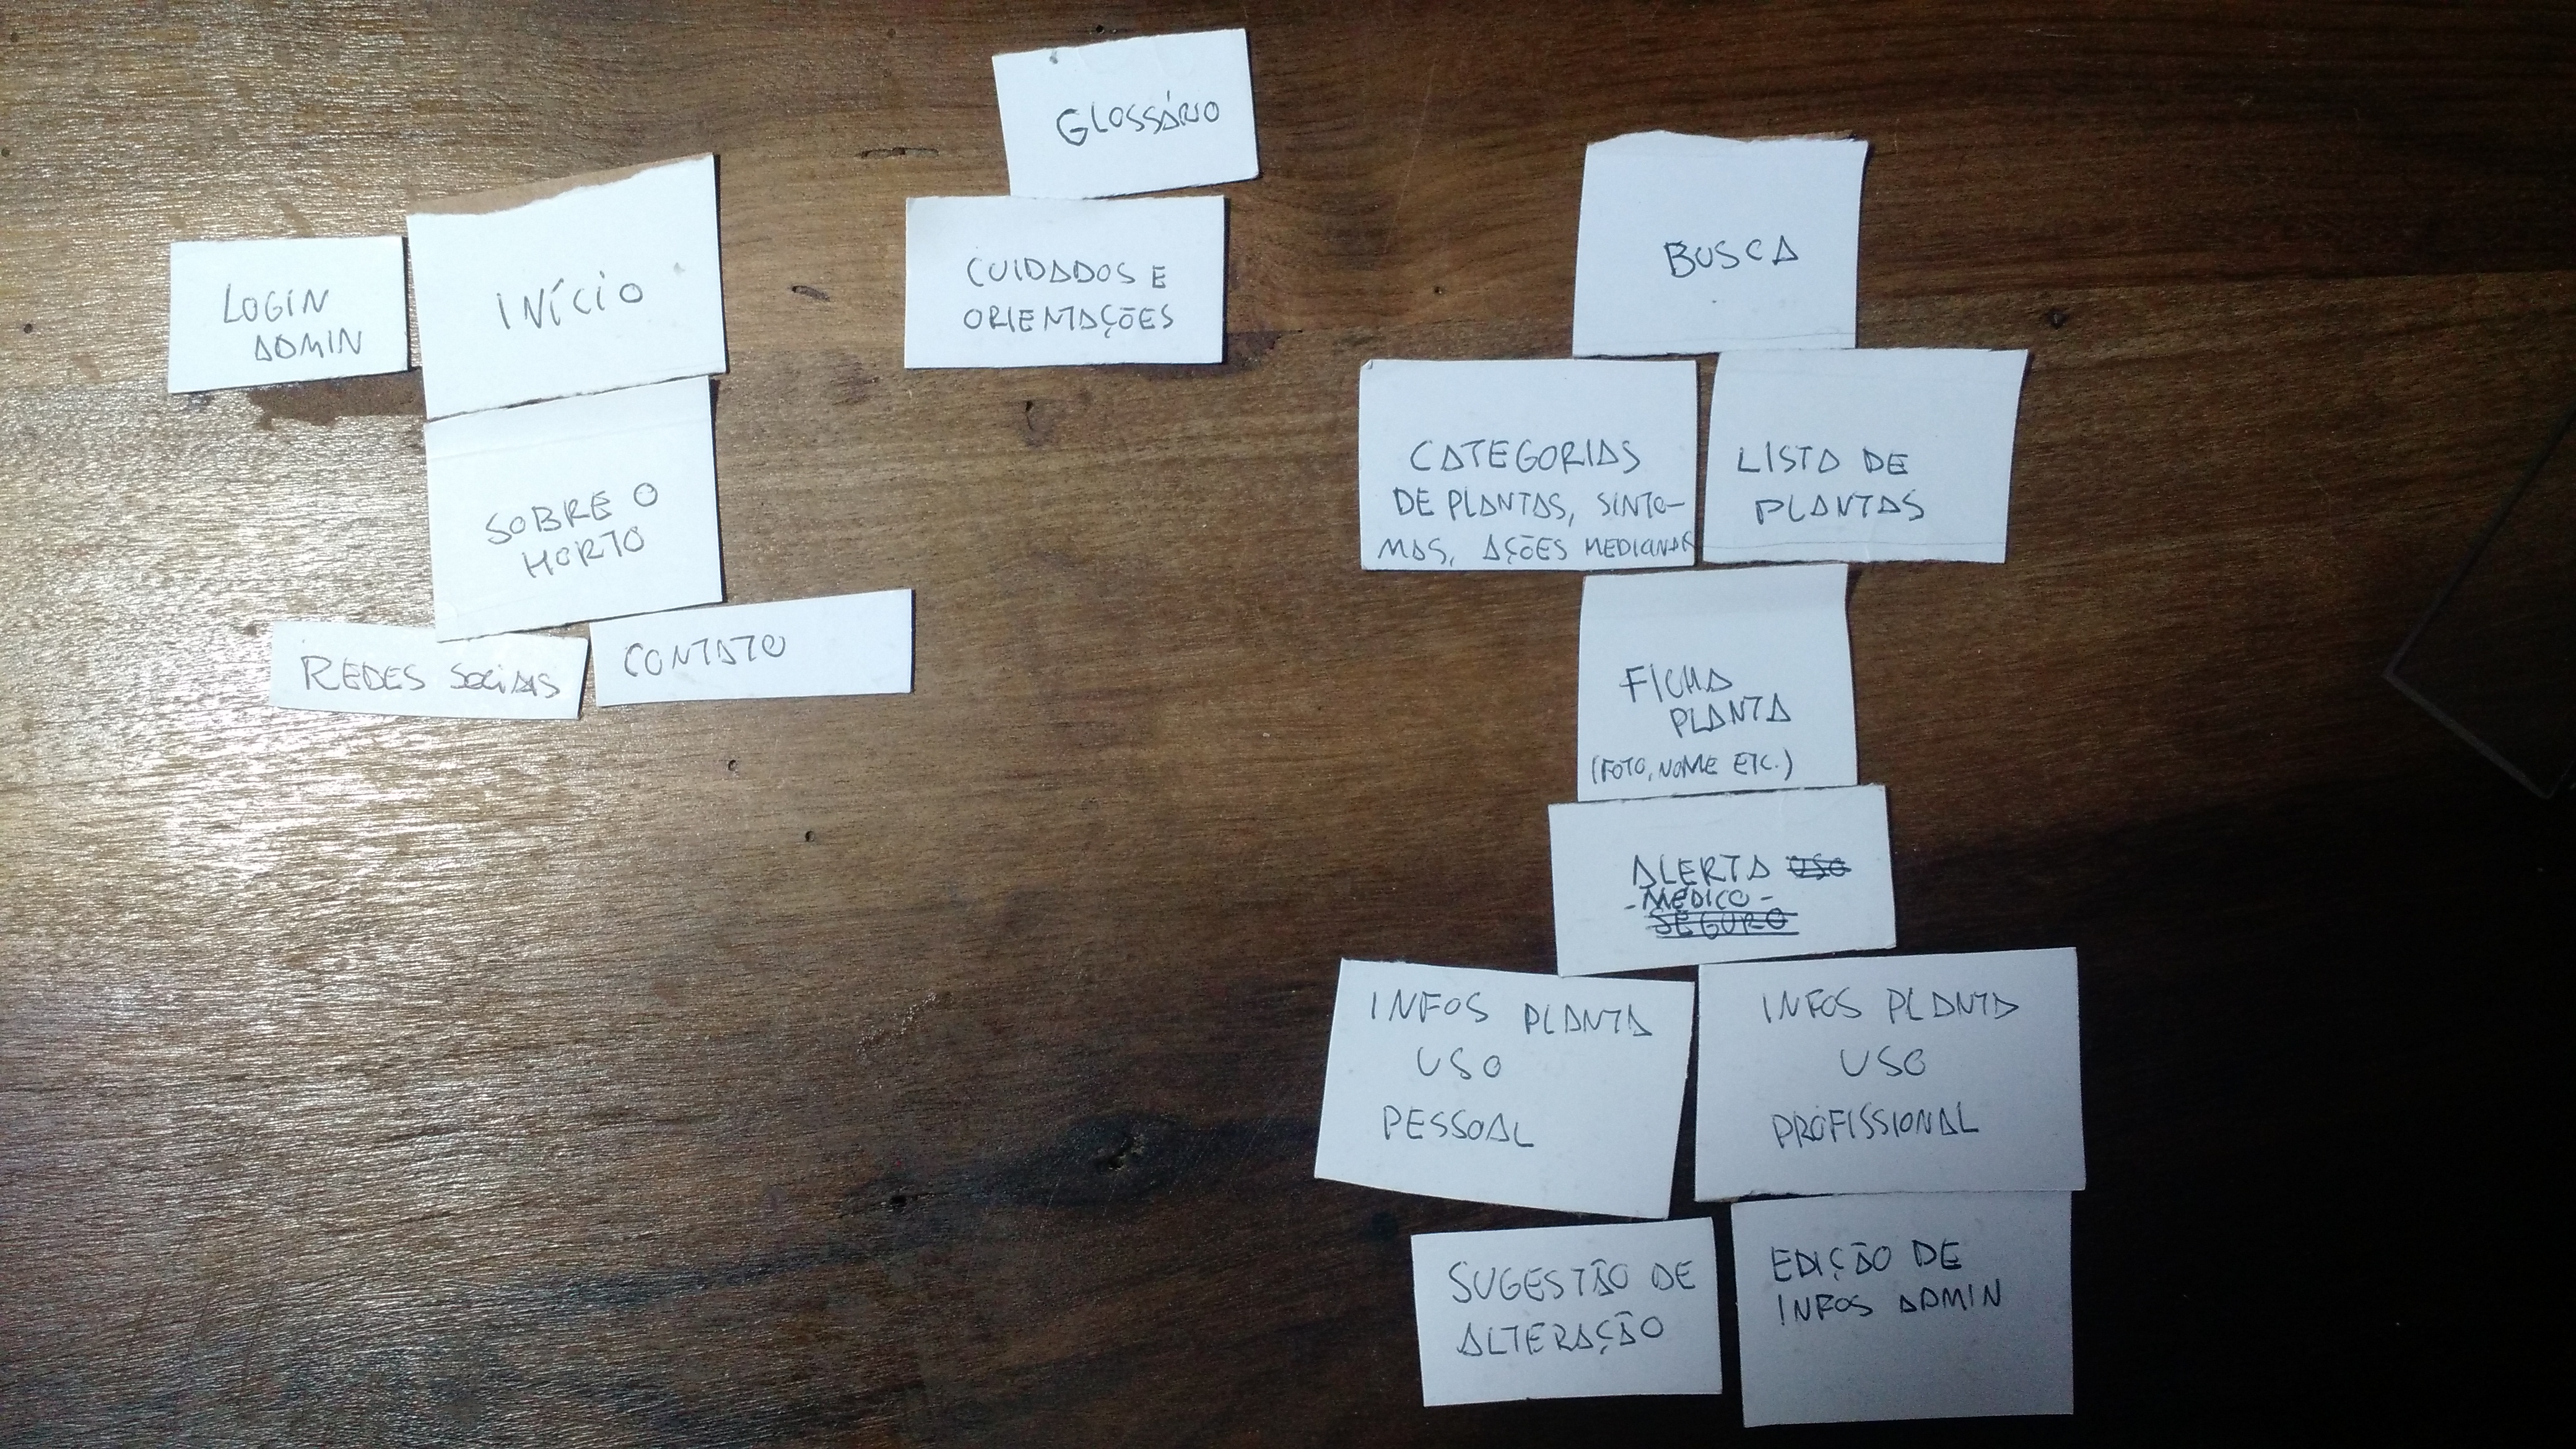 LOGIN
ADMIN
INÍCIO
SOBRE O
HORTO
REDES SOCIAIS
CONTATO
GLOSSÁRIO
CUIDADOS E
ORIENTAÇÕES
BUSCA
CATEGORIAS
DE PLANTAS, SINTO-
MAS, AÇÕES MEDICINAIS
LISTA DE
PLANTAS
FICHA
PLANTA
(FOTO, NOME ETC.)
ALERTA USO
- MÉDICO -
SEGURO
INFOS PLANTA
USO
PESSOAL
INFOS PLANTA
USO
PROFISSIONAL
SUGESTÃO DE
ALTERAÇÃO
EDIÇÃO DE
INFOS ADMIN